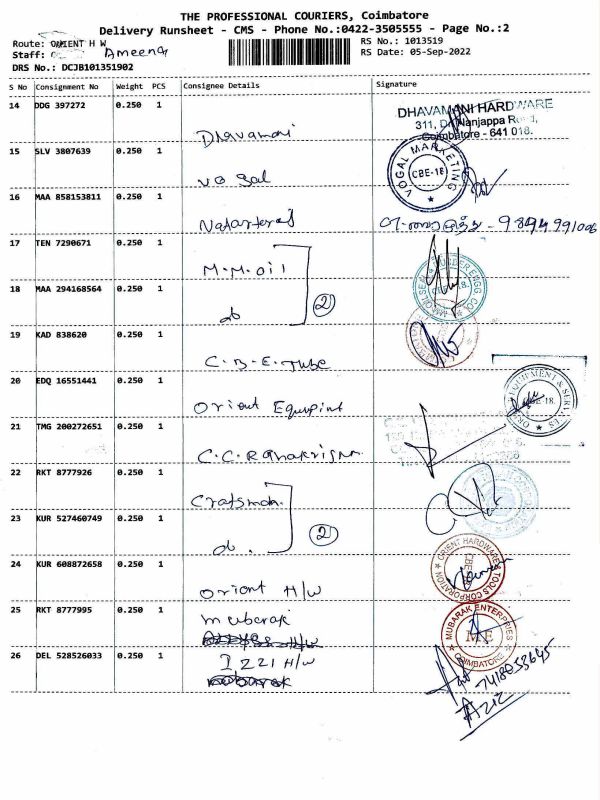 THE PROFESSIONAL COURIERS, Coimbatore
Delivery Runsheet - CMS - Phone No.:0422-3505555 - Page No.:2
Route: ORIENT H W
Staff: Ameena
DRS No.: DCJB101351902
RS No.: 1013519
RS Date: 05-Sep-2022
S No Consignment No Weight PCS Consignee Details Signature
14 DDG 397272 0.250 1 Dhavamani
DHAVAMANI HARDWARE
311, Dr. Nanjappa Road,
Coimbatore - 641 018.
15 SLV 3807639 0.250 1 vogal
VOGAL MARKETING
CBE-18
16 MAA 858153811 0.250 1
17 TEN 7290671 0.250 1 M.M.oil
18 MAA 294168564 0.250 1 do 2
19 KAD 838620 0.250 1 C.B.E.Tube
20 EDQ 16551441 0.250 1 Orient Equipint
EQUIPMENT &
21 TMG 200272651 0.250 1
22 RKT 8777926 0.250 1 Craftsman
23 KUR 527460749 0.250 1 do. 2
24 KUR 608872658 0.250 1 Orient H/W
ORIENT HARDWARE & TOOLS CORPORATION
CBE
25 RKT 8777995 0.250 1 mubarak
MUBARAK ENTERPRIES
M E
COIMBATORE
26 DEL 528526033 0.250 1 IZZI H/W
7418053645
Aziz